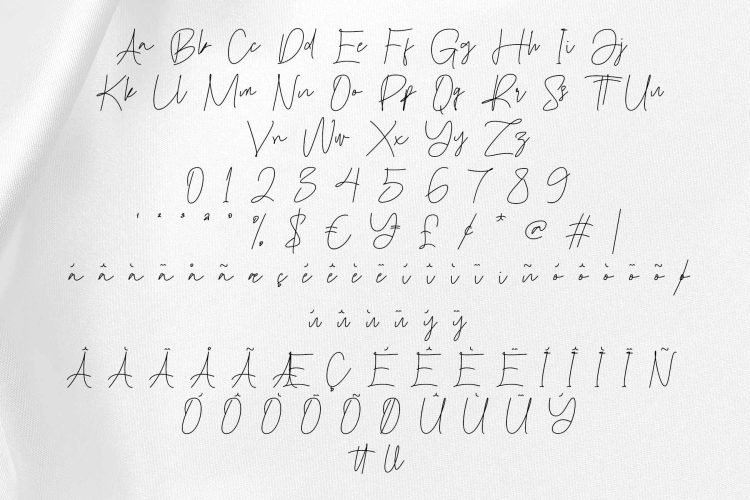 An Bb Cc Dd Ee Ff Gg Hh Ii Jj
Kk Ll Mm Nn Oo Pp Qq Rr Ss Tt Uu
Vv Ww Xx Yy Zz
0 1 2 3 4 5 6 7 8 9
¹ ² ³ ª º % $ € ¥ £ ¢ * @ # |
á â à ä å ã æ ç é ê è ë í î ì ï ı ñ ó ô ò ö õ ø
ú û ù ü ý ÿ
Â À Ä Å Ã Æ Ç É Ê È Ë Í Î Ì Ï Ñ
Ó Ô Ò Ö Õ Ø Û Ù Ü Ý
tt ll